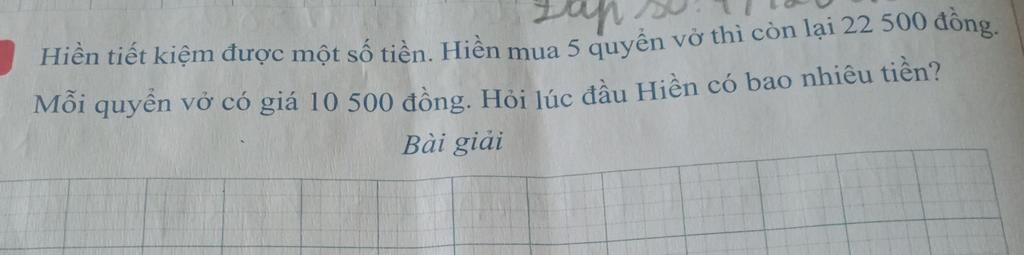 Hiền tiết kiệm được một số tiền. Hiền mua 5 quyển vở thì còn lại 22 500 đồng.
Mỗi quyển vở có giá 10 500 đồng. Hỏi lúc đầu Hiền có bao nhiêu tiền?
Bài giải